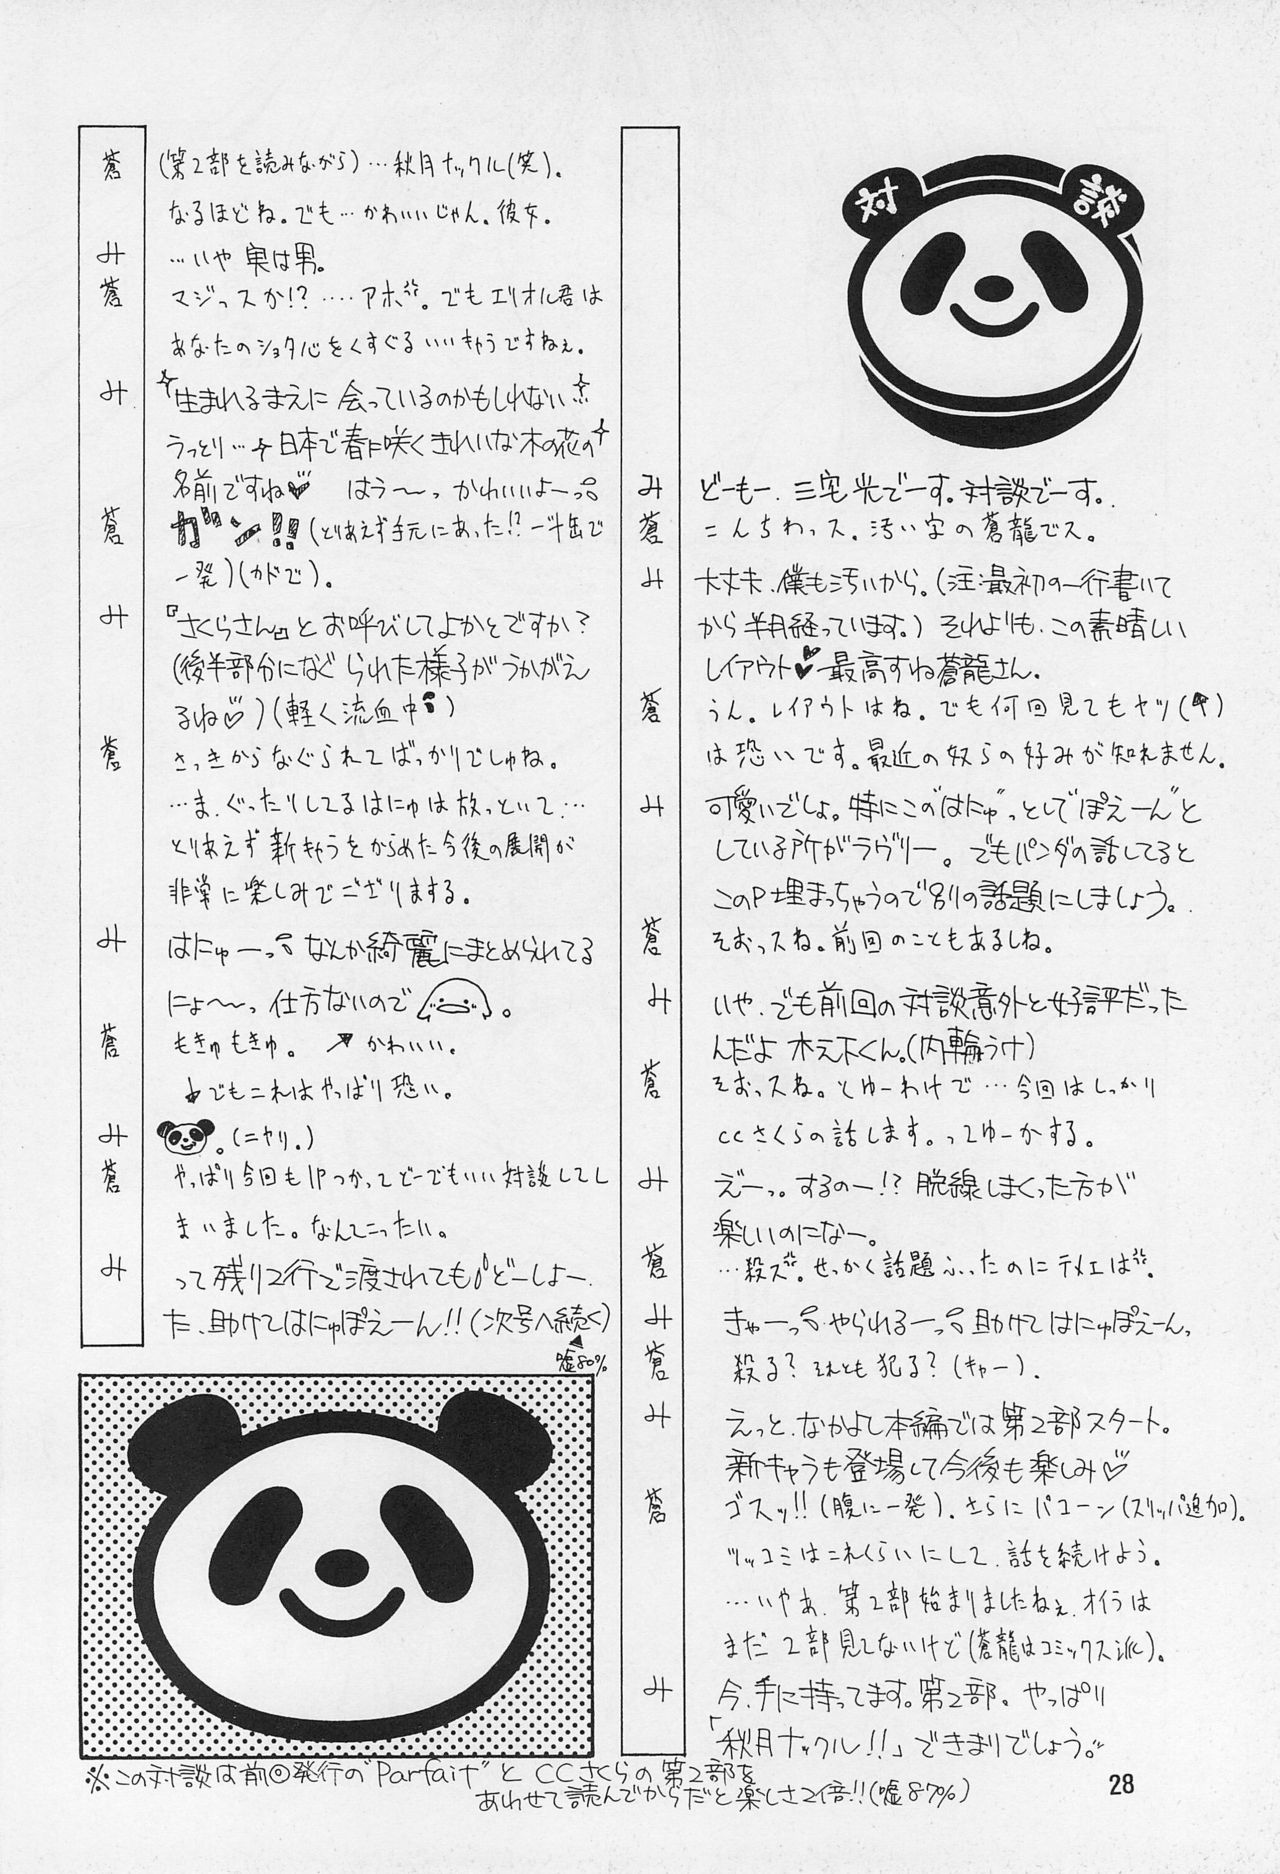 対談
み どーもー、三宅光でーす。対談でーす。
蒼 こんちわっス。汚い字の蒼龍でス。
み 大丈夫、僕も汚いから。(注:最初の一行書いて
から半月経っています。) それよりも、この素晴しい
レイアウト♥最高すね蒼龍さん。
蒼 うん。レイアウトはね。でも何回見てもヤツ(中)
は恐いです。最近の奴らの好みが知れません。
み 可愛いでしょ。特にこの"はにゅ"っとして"ぽえーん"と
している所がラヴリー。でもパンダの話してると
このP埋まっちゃうので別の話題にしましょう。
蒼 そおっスね。前回のこともあるしね。
み いや、でも前回の対談意外と好評だった
んだよ木元下くん。(内輪うけ)
蒼 そおっスね。とゆーわけで…今回はしっかり
CCさくらの話します。ってゆーかする。
み えーっ。するのー!? 脱線しまくった方が
楽しいのになー。
蒼 …殺ズ。せっかく話題ふったのにテメエは。
み きゃーっ。やられるーっ。助けてはにゅぽえーんっ
蒼 殺る? それとも犯る? (キャー)。
み えっと、なかよし本編では第2部スタート。
新キャラも登場して今後も楽しみ♡
蒼 ゴスッ!! (腹に一発)。さらにパコーン(スリッパ追加)。
ツッコミはこれくらいにして、話を続けよう。
…いやあ、第2部始まりましたねぇ、オイラは
まだ2部見てないけど(蒼龍はコミックス派)。
み 今、手に持ってます。第2部。やっぱり
「秋月ナックル!!」できまりでしょう。
蒼 (第2部を読みながら)…秋月ナックル(笑)。
なるほどね。でも…かわいいじゃん。彼女。
み …いや実は男。
蒼 マジっスか!? ‥‥アホ。でもエリオル君は
あなたのショタ心をくすぐるいいキャラですねぇ。
み 生まれるまえに会っているのかもしれない…
うっとり…日本で春に咲くきれいな木の花の
名前ですね♡ はう〜っかわいいよーっ
蒼 ガン!!(とりあえず手元にあった!?一斗缶で
一発)(カドで)。
み 『さくらさん』とお呼びしてよかとですか?
(後半部分になぐられた様子がうかがえ
るね♡)(軽く流血中)
蒼 さっきからなぐられてばっかりでしゅね。
…ま、ぐったりしてるはにゅは放っといて…
とりあえず新キャラをからめた今後の展開が
非常に楽しみでござりまする。
み はにゅーっ なんか綺麗にまとめられてる
にょ〜っ 仕方ないので 。
蒼 もきゅもきゅ。 かわいい。
でもこれはやっぱり恐い。
み 。(ニヤリ。)
蒼 やっぱり今回も1Pつかってどーでもいい対談してし
まいました。なんてこったい。
み って残り2行で渡されても♪どーしよー。
た、助けてはにゅぽえーん!! (次号へ続く)
嘘80%
※この対談は前回発行の"Parfait"とCCさくらの第2部を
あわせて読んでからだと楽しさ2倍!!(嘘87%)
28